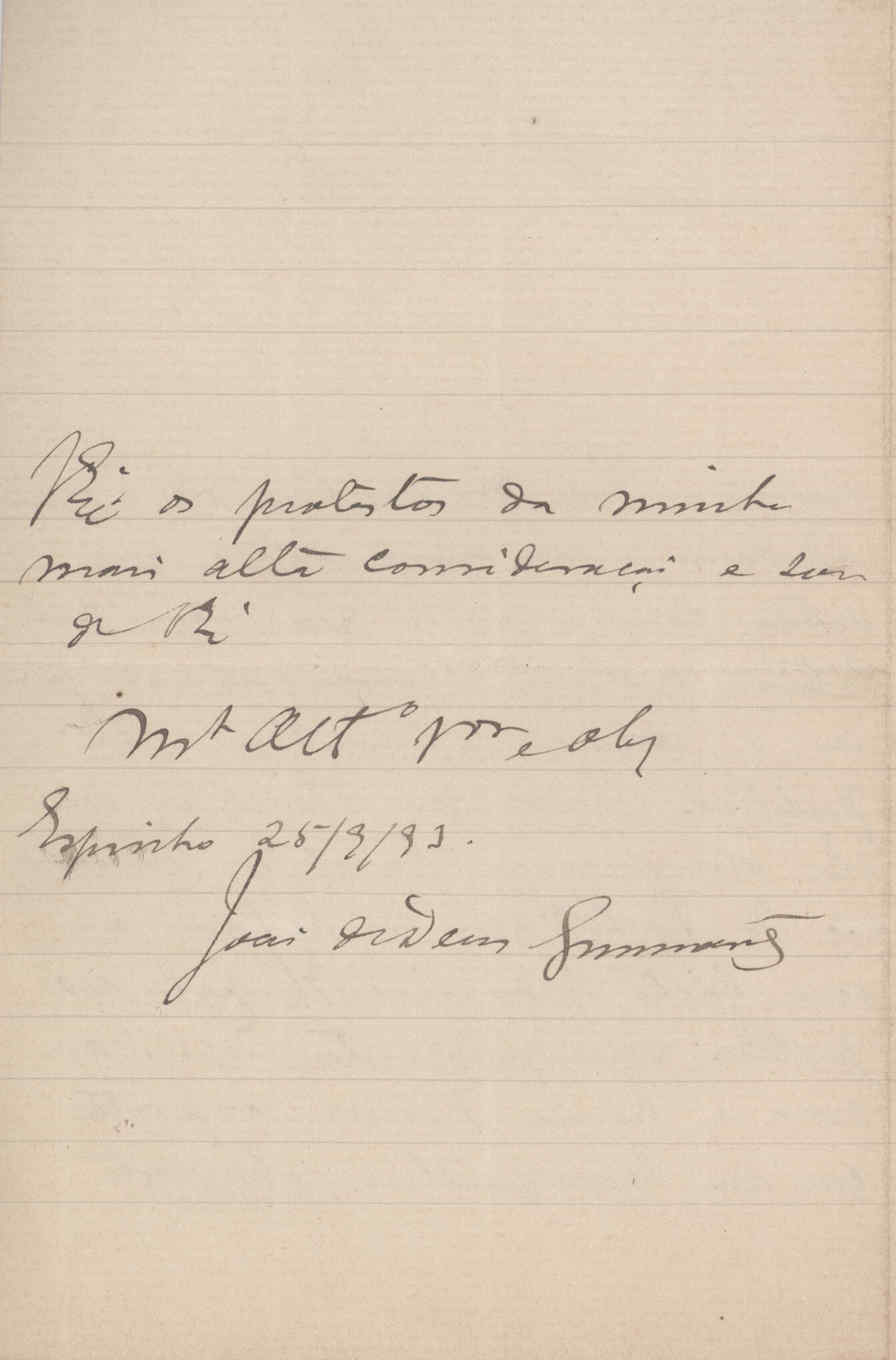 V. Ex.ª os protestos da minha
mais alta consideração e sou
de V. Ex.ª
Mt Att.º ven e obg
Espinho 25/9/93.
João de Deus Guimarães